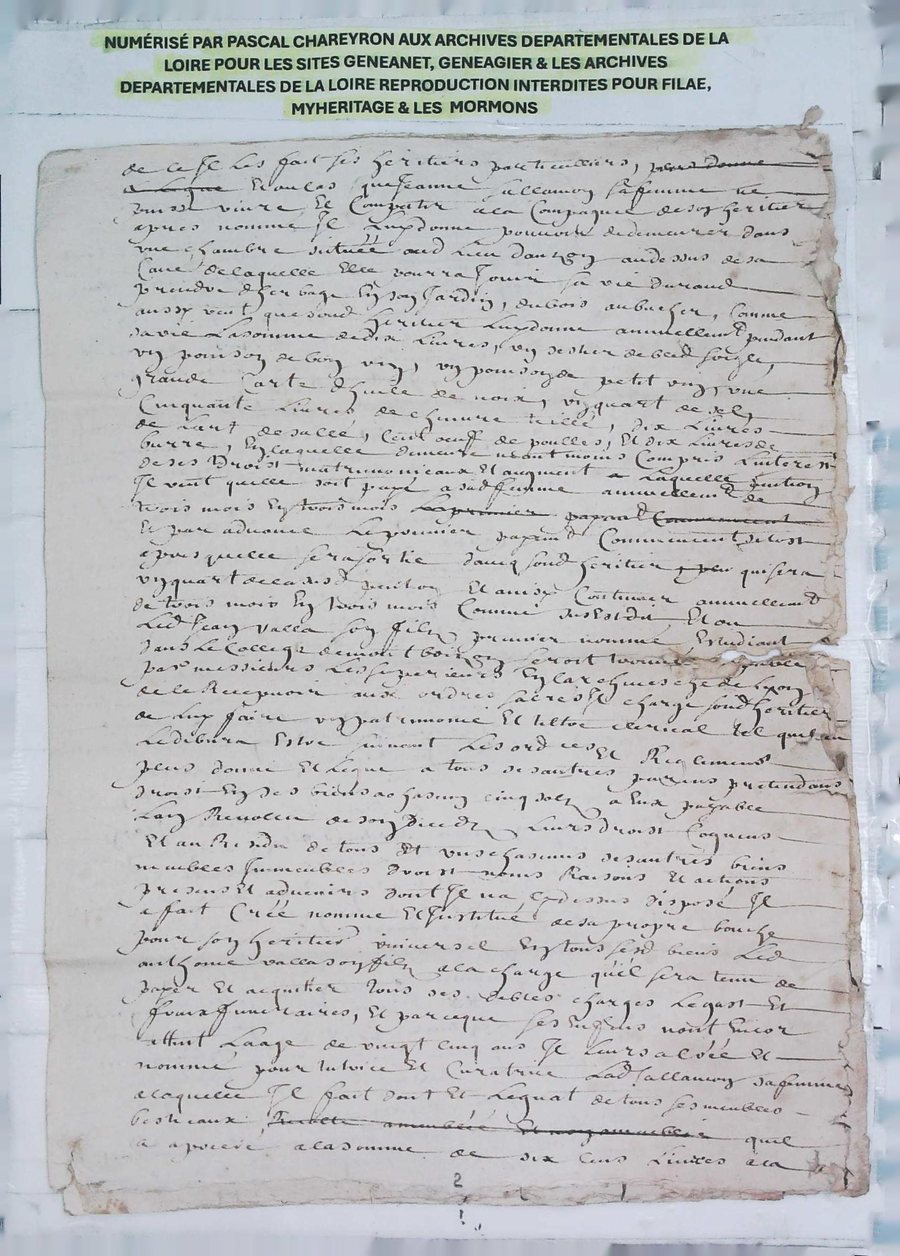 NUMÉRISÉ PAR PASCAL CHAREYRON AUX ARCHIVES DEPARTEMENTALES DE LA
LOIRE POUR LES SITES GENEANET, GENEAGIER & LES ARCHIVES
DEPARTEMENTALES DE LA LOIRE REPRODUCTION INTERDITES POUR FILAE,
MYHERITAGE & LES MORMONS
de ce Il les fait ses heritiers particulliers, plus donne
Et au cas que Jeanne Jallamon sa femme ne
puisse vivre Et Compatir a la Compagnie de son heritier
apres nomme Il luy donne pouvoir de demeurer dans
une chambre située aud lieu au dessus de sa
Cave de laquelle Elle pourra Jouir sa vie durand
prendre d'herbage En son Jardin, du bois au bucher, comme
aussy veut que sond heritier luy donne annuellemt pendant
sa vie La somme de dix Livres, un sestier de bled soigle,
un poinson de bon vin, un poinson de petit vin, une
grande Carte d'huile de noix, un quart de sel,
Cinquante Livres de chanvre , dix Livres
de Lard de sallé, Cent oeuf de poulles, Et dix Livres de
burre, En laquelle demeure neantmoins Compris Linterest
de ses Droist matrimoniaux Et augment Laquelle pention
Il veut quelle soit payé a sad femme annuellemt de
trois mois En trois mois Le premier payemt Commencent
Et par advance Le premier payemt Commencent
apres quelle sera sortie davecq sond heritier qui sera
un quart de lad pention Et ainsy Continuer annuellemt
de trois mois En trois mois Comme susEst dit, Et ou
Led Jean Valla son filz premier nommé, Estudiant
dans Le College de seroit trouvé
par messieurs Les superieurs En larchevesché de Lyon
de le Recepvoir aux ordres sacrés Il charge sond heritier
de luy faire un patrimonie Et tiltre clerical tel quil
Le debvra Estre suivant Les ordces Et Reglement
plus donne Et Legue a tous ses autres parens pretendans
droist En ses biens a chascun cinq solz a Eux payable
Lan Revolu de son deceds, Leurs droist Cogneus
Et au Residu de tous Et uns chascuns ses autres biens
meubles Immeubles droist noms Raisons Et actions
presens Et advenirs dont Il na cy dessus disposé Il
a fait Créé nomme Et Institue de sa propre bouche
pour son heritier universel En tous sesd biens Led
anthoine valla son filz a la charge qu'il sera tenu de
payer Et acquitter tous ses debtes charges Legast Et
fraix funeraires, Et parceque ses Enfans nont Encor
attint Laage de vingt cinq ans Il Leurs a créé Et
nommé pour tutrice Et Curatrice Lad Jallamon sa femme
a laquelle Il fait dont Et Leguat de tous ses meubles
bestieaux quil
a a la somme de six cens Livres a la
2